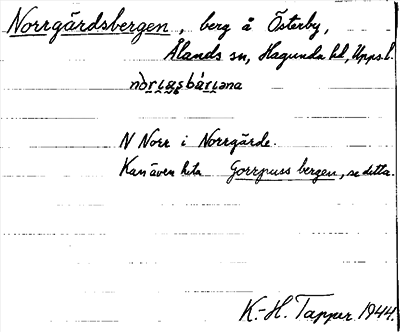 Norrgärdsbergen, berg å Österby,
Ålands sn, Hagunda hd, Upps. l.
N Norr i Norrgärde.
Kan även heta Gorrpuss bergen, se detta.
K.-H. Tapper 1944.